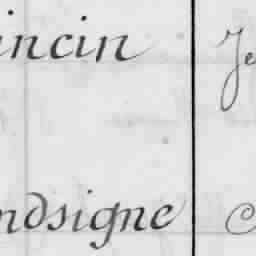 incin Je
ndsigne C